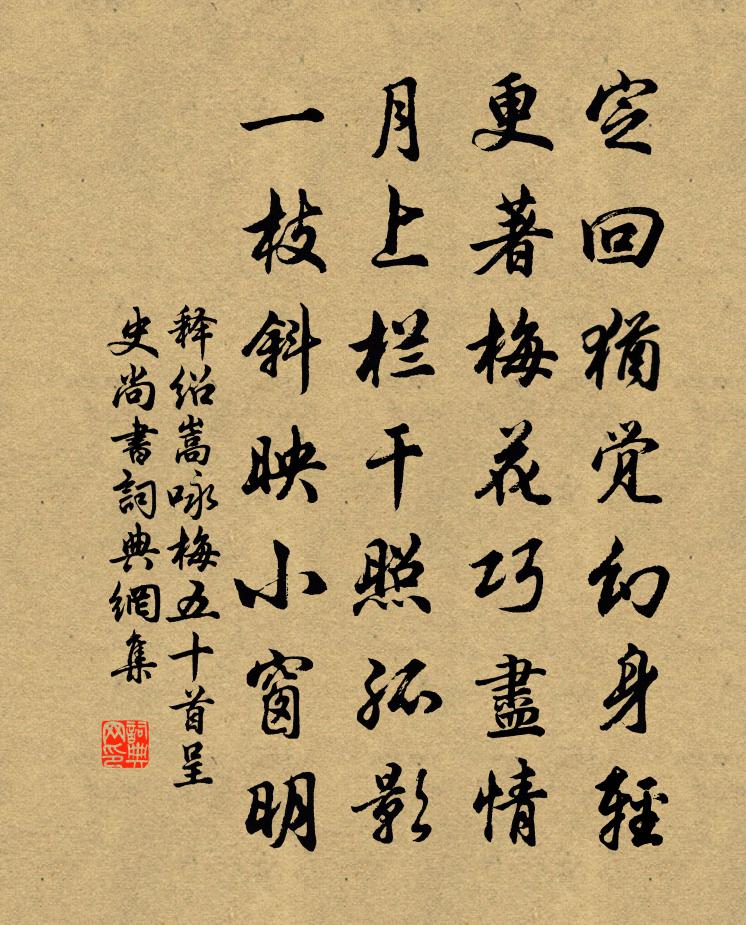 定回犹觉幻身輕
更著梅花巧盡情
月上栏干照孤影
一枝斜映小窗明
释绍嵩咏梅五十首呈
史尚書詞典網集
詞典网印